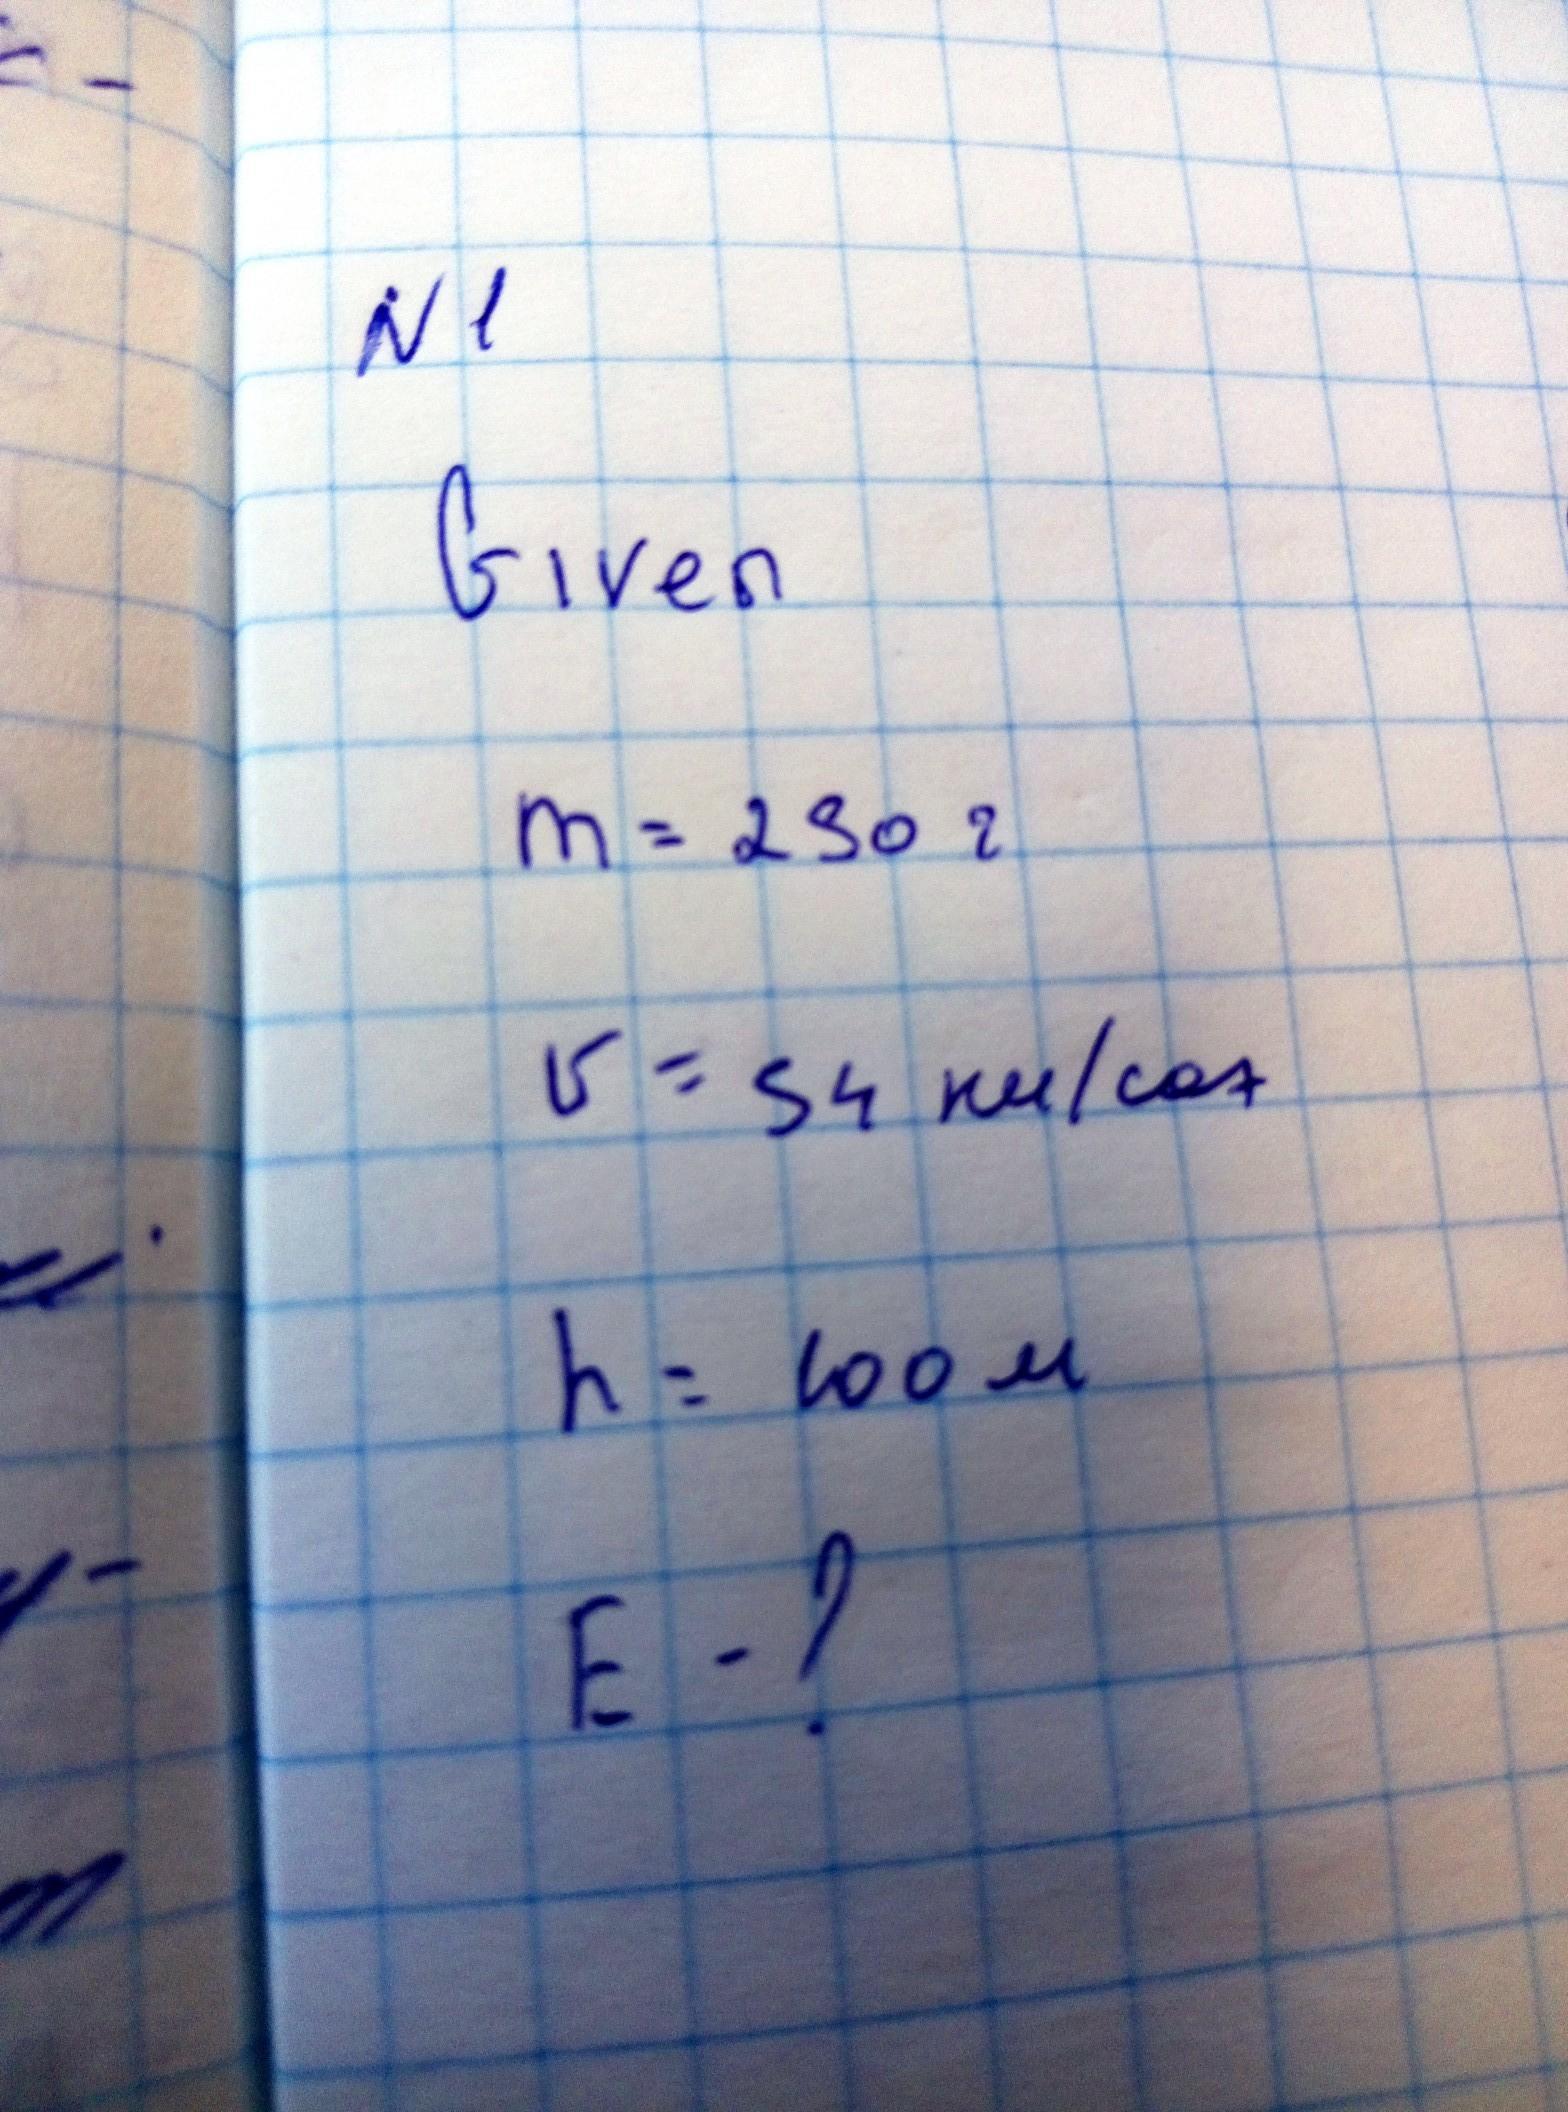 N 1
Given
m = 250 г
v = 54 км/саг
h = 100 м
E - ?